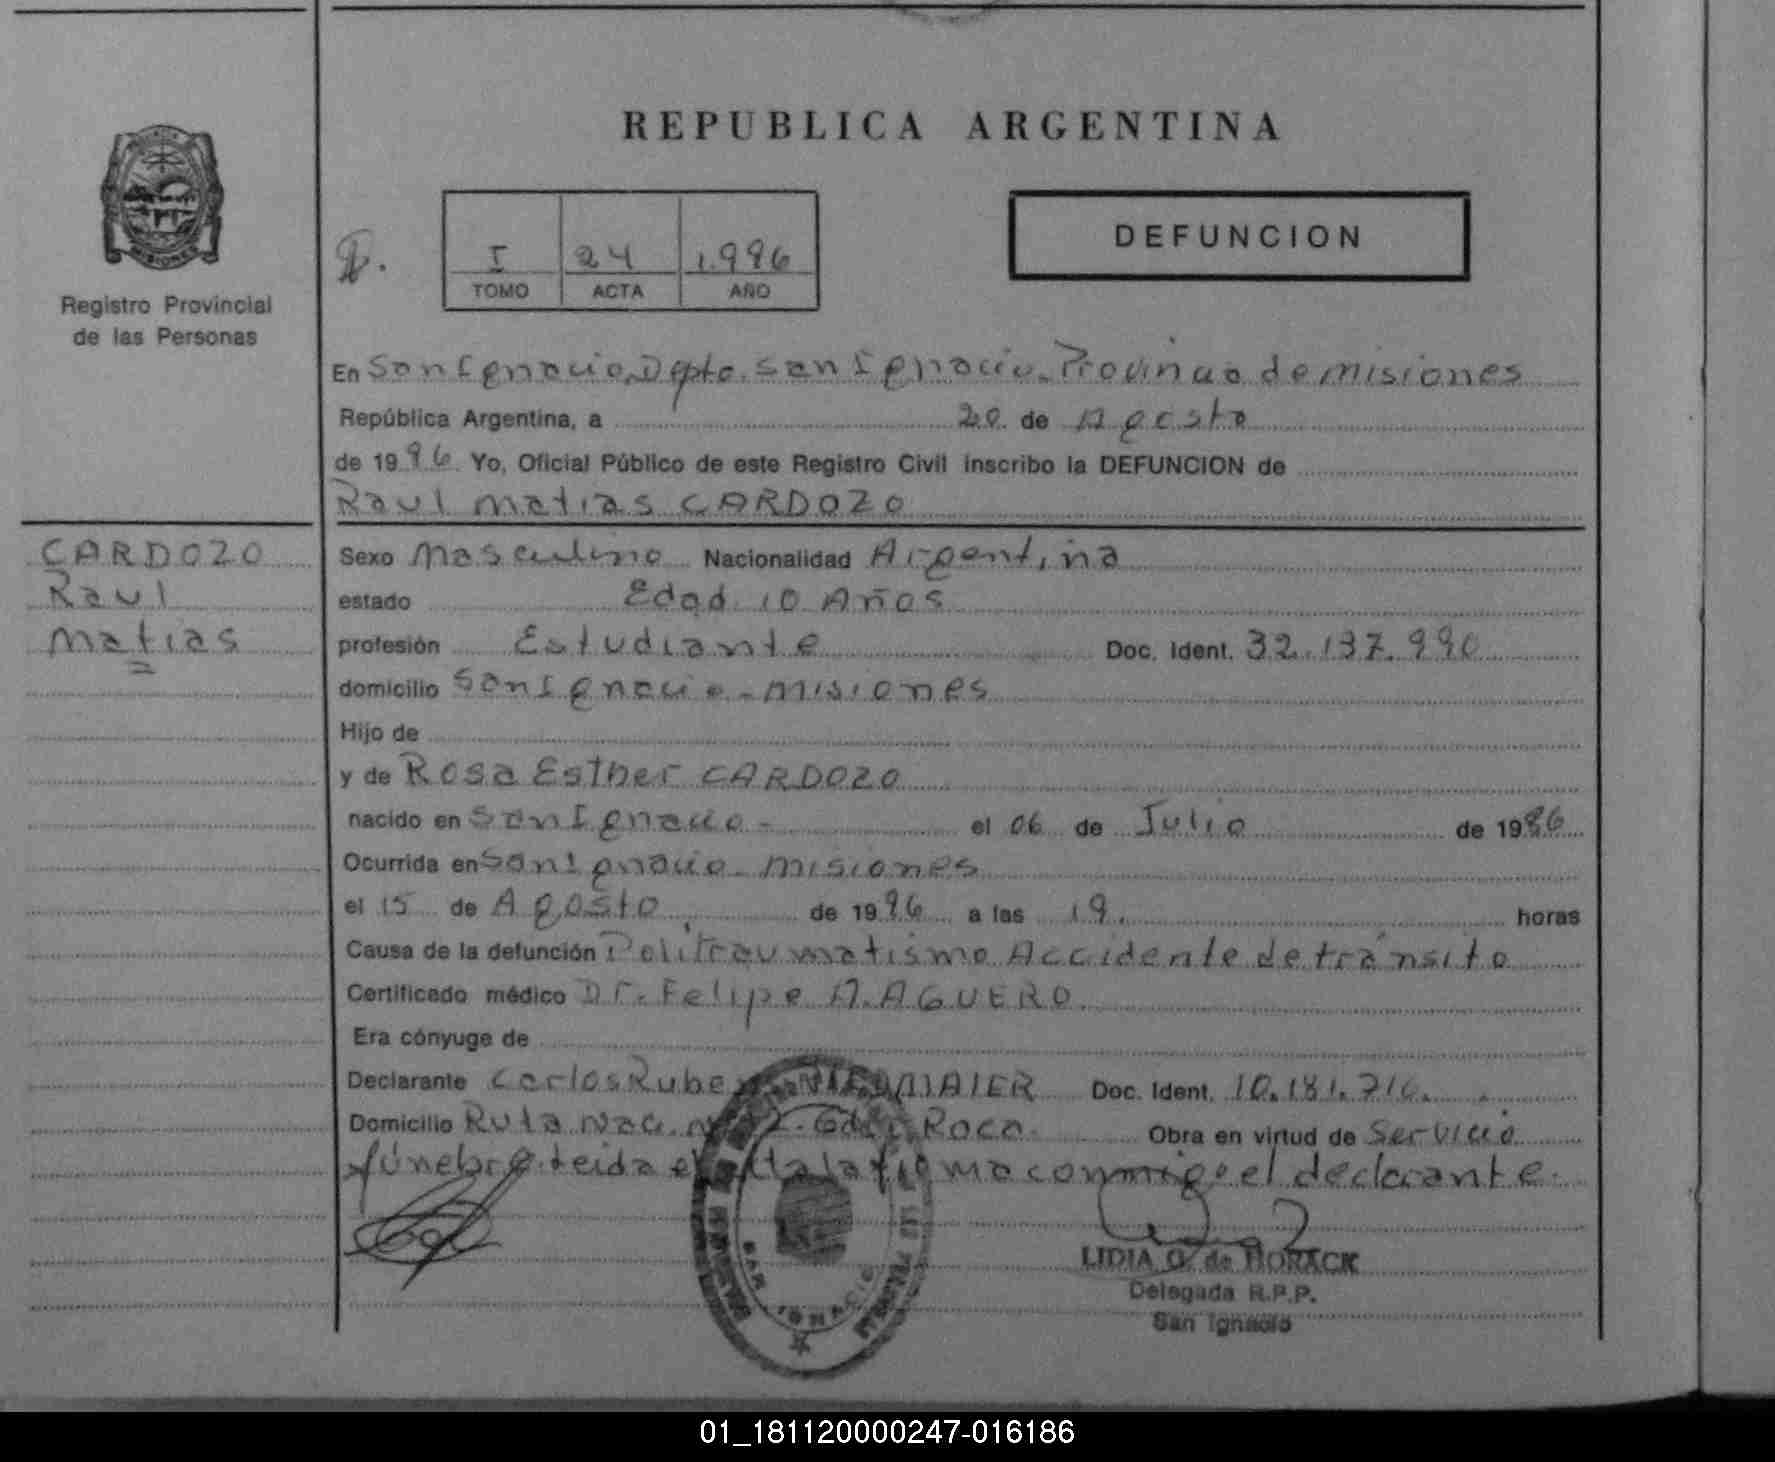 REPUBLICA ARGENTINA
DEFUNCION
I 24 1.996
TOMO ACTA AÑO
Registro Provincial
de las Personas
MISIONES
En San Ignacio, Dpto. San Ignacio. Provincia de misiones
República Argentina, a 20 de Agosto
de 1996 Yo, Oficial Público de este Registro Civil inscribo la DEFUNCION de
Raul matias CARDOZO
CARDOZO
Raul
matias
Sexo masculino Nacionalidad Argentina
estado Edad 10 Años
profesión Estudiante Doc. Ident. 32.137.990
domicilio San Ignacio - misiones
Hijo de
y de Rosa Esther CARDOZO
nacido en San Ignacio - el 06 de Julio de 1986
Ocurrida en San Ignacio - misiones
el 15 de Agosto de 1996 a las 19. horas
Causa de la defunción Politraumatismo Accidente de tránsito
Certificado médico Dr. Felipe A. AGUERO
Era cónyuge de
Declarante Carlos Rube Doc. Ident. 10.181.716.
Domicilio Ruta Nac. Roca. Obra en virtud de Servicio
fúnebre leida el acta la firma conmigo el declarante.
LIDIA G. de HORACK
Delegada R.P.P.
San Ignacio
SAN IGNACIO
01_181120000247-016186